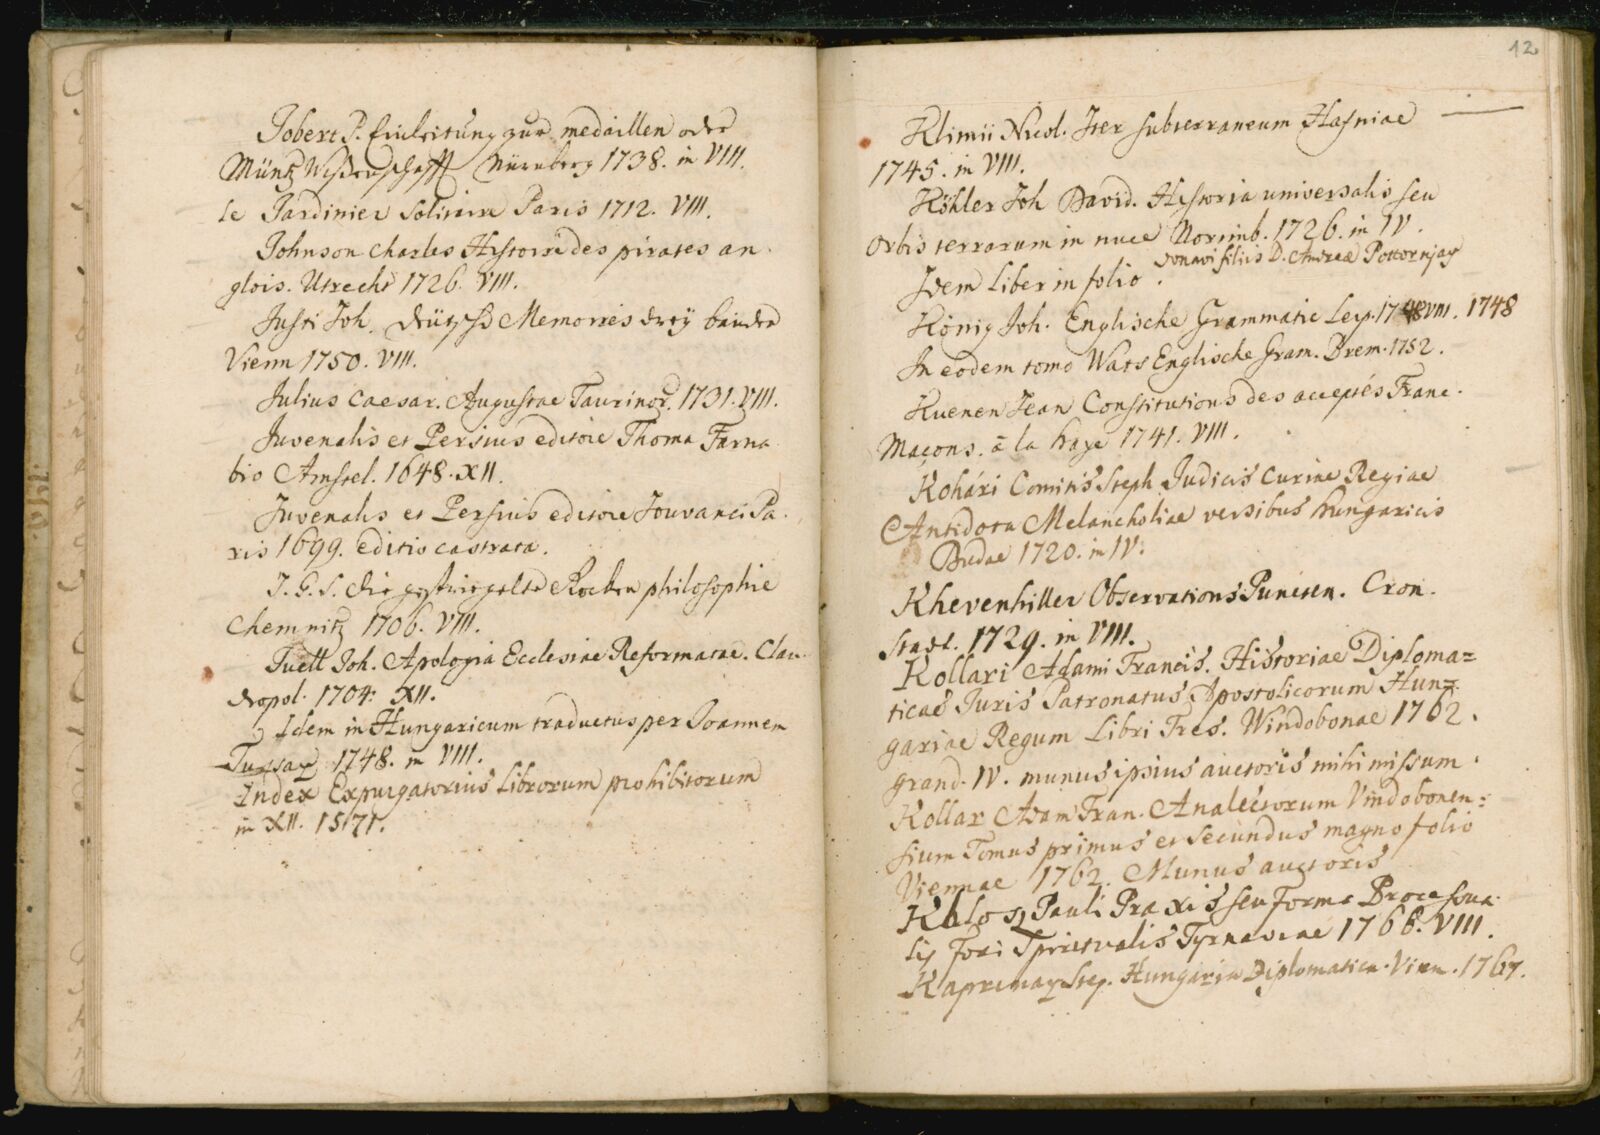 Jobert P. Einleitung zur medaillen oder
Müntz Wißenschafft Nürnberg 1738. in VIII.
le Jardinier Solitaire Paris 1712. VIII.
Johnson Charles Histoire des pirates an
glois. Utrecht 1726. VIII.
Justi Joh. deütsche Memoires drey bände
Vienn 1750. VIII.
Julius Caesar. Augustae Taurinor. 1731. VIII.
Juvenalis et Persius editore Thoma Farna
bio Amstel. 1648. XII.
Juvenalis et Persius editore Jouvanci Pa
ris 1699. editio castrata.
J. G. S. die gestriegelte Rocken philosophie
Chemnitz 1706. VIII.
Juell Joh. Apologia Ecclesiae Reformatae. Clau
diopol. 1704. XII.
Idem in Hungaricum traductus per Joannem
1748. in VIII.
Index Expurgatorius Librorum prohibitorum
in XII. 1571.
12
Klimii Nicol. Iter subterraneum Hafniae
1745. in VIII.
Köhler Joh David. Historia universalis seu
Orbis terrarum in nuce Norimb. 1726. in IV.
donavi filiis D. Andreae Pottornyay
Idem Liber in folio.
König Joh. Englische Grammatic Leip. 1748 VIII. 1748
In eodem tomo Wats Englische Gram. Brem. 1752.
Kuenen Jean Constitutions des acceptés Franc.
Maçons. à la haye 1741. VIII.
Kohári Comitis Steph Judicis Curiae Regiae
Antidota Melancholiae versibus hungaricis
Budae 1720. in IV.
Khevenhiller Observations Puncten. Cron.
Stadt. 1729. in VIII.
Kollari Adami Francis. Historiae Diploma=
ticae Juris Patronatus Apostolicorum Hun=
gariae Regum Libri Tres. Windobonae 1762.
grand. IV. munus ipsius auctoris mihi missum.
Kollar Adam Fran. Analectorum Vindobonen=
sium Tomus primus et Secundus magno folio
Viennae 1762. Munus auctoris
Pauli Praxis seu Forma Processua
lis Fori Spiritualis Tyrnaviae 1766. VIII.
Kaprinay Step. Hungaria Diplomatica. Vien. 1767.